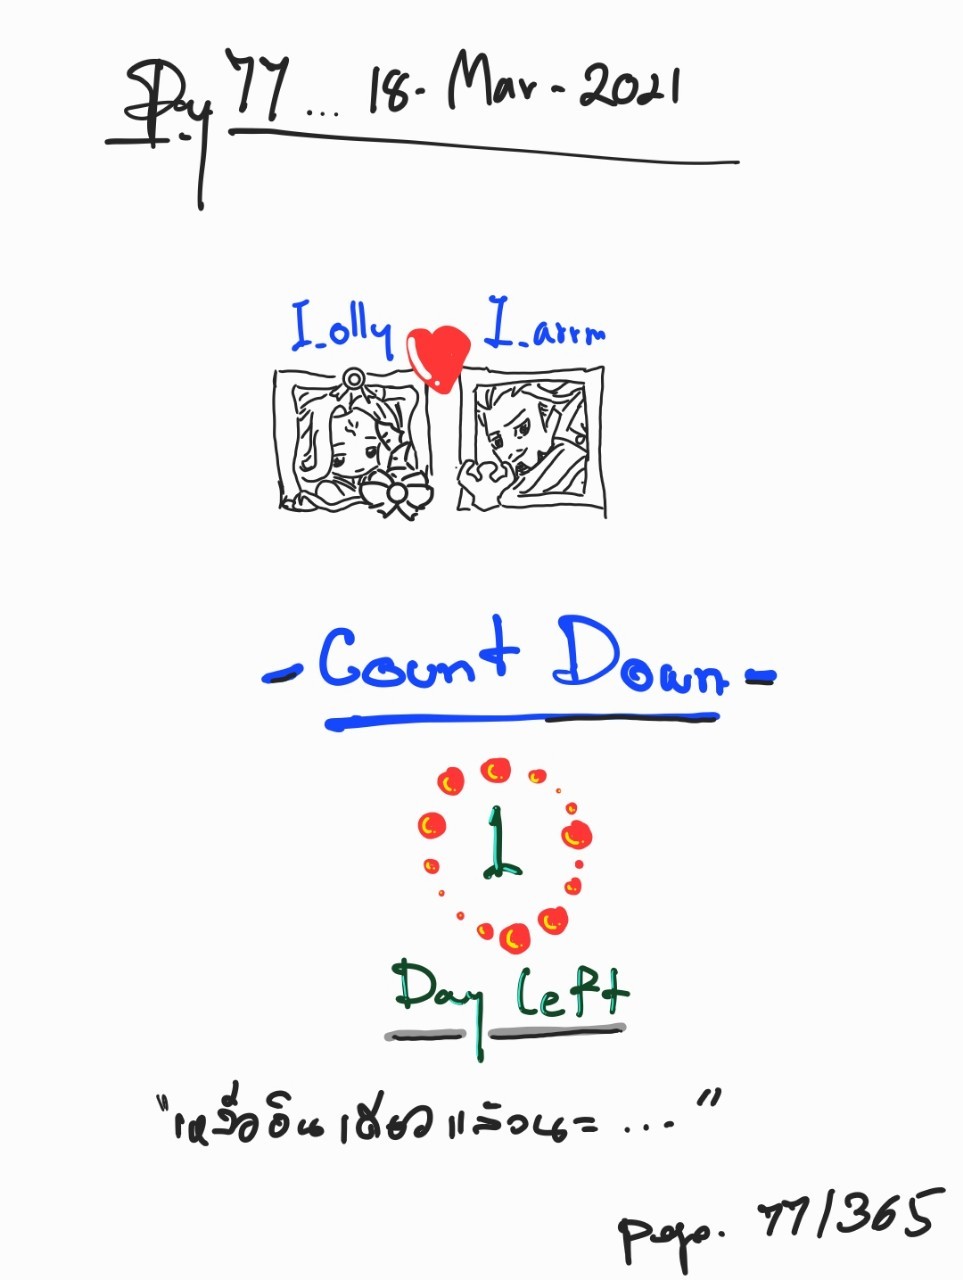 Day 77 ... 18-Mar-2021
I_olly I_arrm
- Count Down -
1
Day Left
"เหลืออีกวันเดียวแล้วนะ ..."
page. 77/365